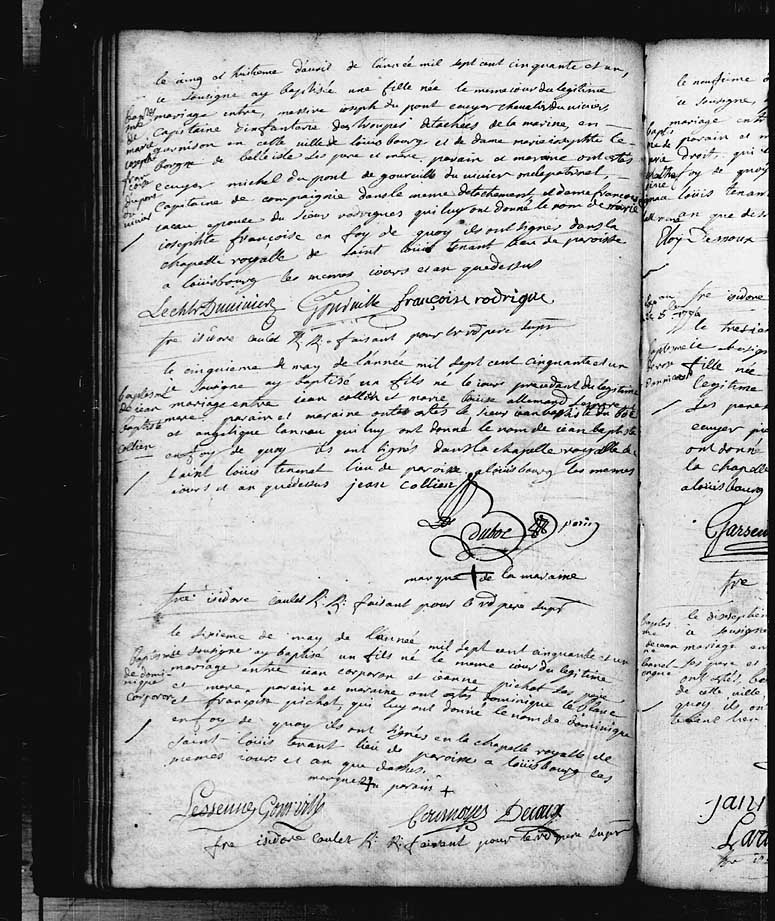 le cinq et huitieme d'avril de l'année mil sept cent cinquante et un,
ie sousigne ay baptisée une fille née le meme iour du legitime
mariage entre, messire ioseph du pont ecuyer chevalier duvivier,
Capitaine d'infanterie des troupes detachées de la marine, en
garnison en cette ville de louisbourg et de dame marie iosephte le
borgne de belle isle ses pere et mere. parain et maraine ont estés
ecuyer michel du pont de gourville du vivier oncle paternel,
Capitaine de compaignie dans le meme detachement, et dame françoise
cacau epouse du sieur rodrigues qui luy ont donné le nom de marie
iosephte françoise en foy de quoy ils ont signes dans la
chapelle royalle de saint louis tenant lieu de paroisse
a louisbourg les memes iours et an que dessus
baptes
me
de
marie
ioseph
fran
çoise
du pont
du
vivier
Lechlr Duvivier Gourville françoise rodrigue
fre isidore caulet R. R. faisant pour le rd pere supr
le cinquieme de may de l'année mil sept cent cinquante et un
ie sousigne ay baptisé un fils né le iour precedant du legitime
mariage entre iean collien et marie louise allemand ses pere
et mere. parain et maraine ont estés le sieur ian baptiste du boc
et angelique lanneau qui luy ont donné le nom de iean baptiste
en foy de quoy ils ont signés dans la chapelle royalle de
saint louis tenant lieu de paroisse a louisbourg les memes
iours et an que dessus jean collien
baptesme
de iean
baptiste
collien
Duboc parin
marque + de la maraine
fre isidore caulet R. R. faisant pour le rd pere supr
le sixieme de may de l'année mil sept cent cinquante et un
ie sousigne ay baptisé un fils né le meme iour du legitime
mariage entre ian corporon et ieanne pichot ses pere
et mere. parain et maraine ont estés dominique le
et françoise pichot, qui luy ont donné le nom de dominique
en foy de quoy ils ont signés en la chapelle royalle de
saint louis tenant lieu de paroisse a louisbourg les
memes iours et an que dessus.
baptesme
de domi-
nique
corporon
marque du parain +
Lessenne
fre isidore caulet R. R. faisant pour le rd pere supr
le neufieme
ie sousigne,
mariage ent
parain et m
droit, qui
foy de quoy
louis tenan
an que des
Eloy Dessoux
fre isidore
le treziem
ie sousign
fille née
legitime
ses pere
ecuyer
ont donné
la chapelle
a louisbourg
fre
le dixseptiem
ie sousigne
mariage en
ses pere et
ont estés,
de cette ville
quoy ils on
tenant lieu